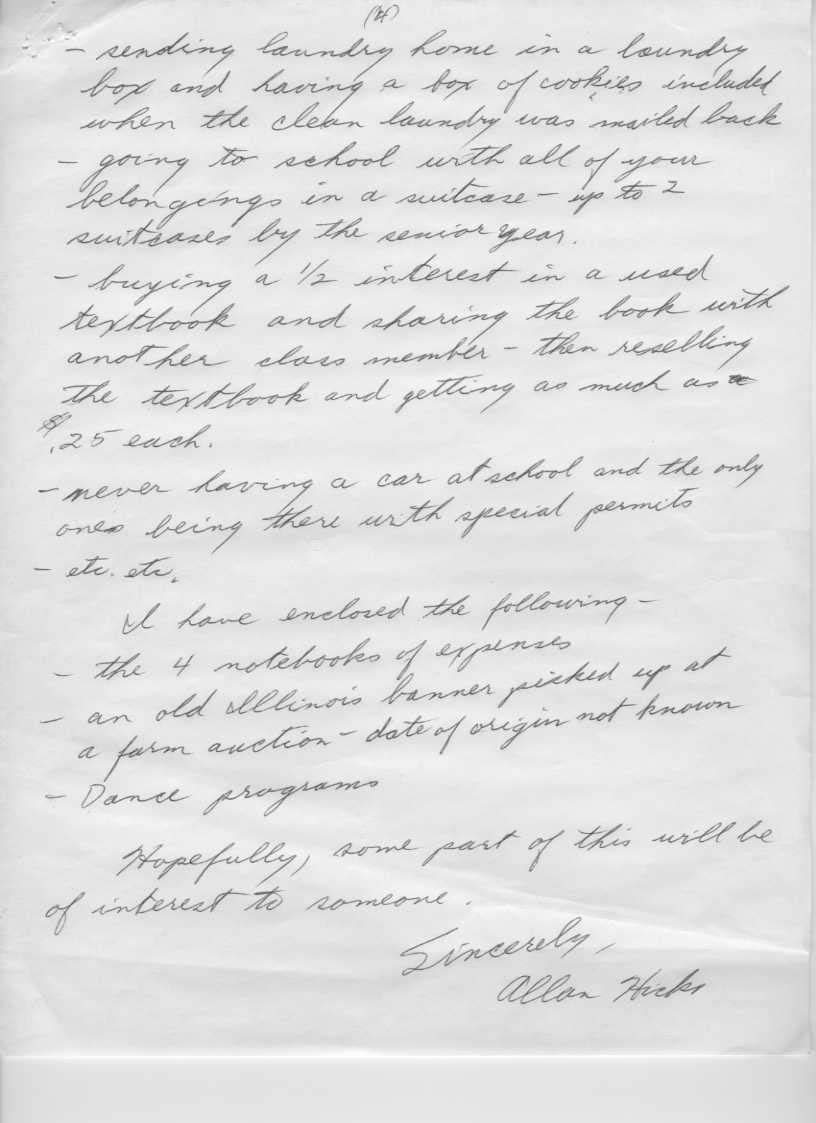 (4)
- sending laundry home in a laundry
box and having a box of cookies included
when the clean laundry was mailed back
- going to school with all of your
belongings in a suitcase - up to 2
suitcases by the senior year.
- buying a 1/2 interest in a used
textbook and sharing the book with
another class member - then reselling
the textbook and getting as much as
$.25 each.
- never having a car at school and the only
ones being there with special permits
- etc. etc.
I have enclosed the following -
- the 4 notebooks of expenses
- an old Illinois banner picked up at
a farm auction - date of origin not known
- Dance programs
Hopefully, some part of this will be
of interest to someone.
Sincerely,
Allan Hicks